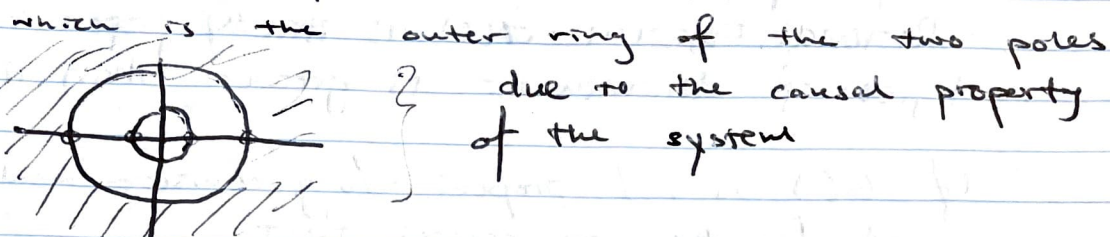 which is the outer ring of the two poles
due to the causal property
of the system